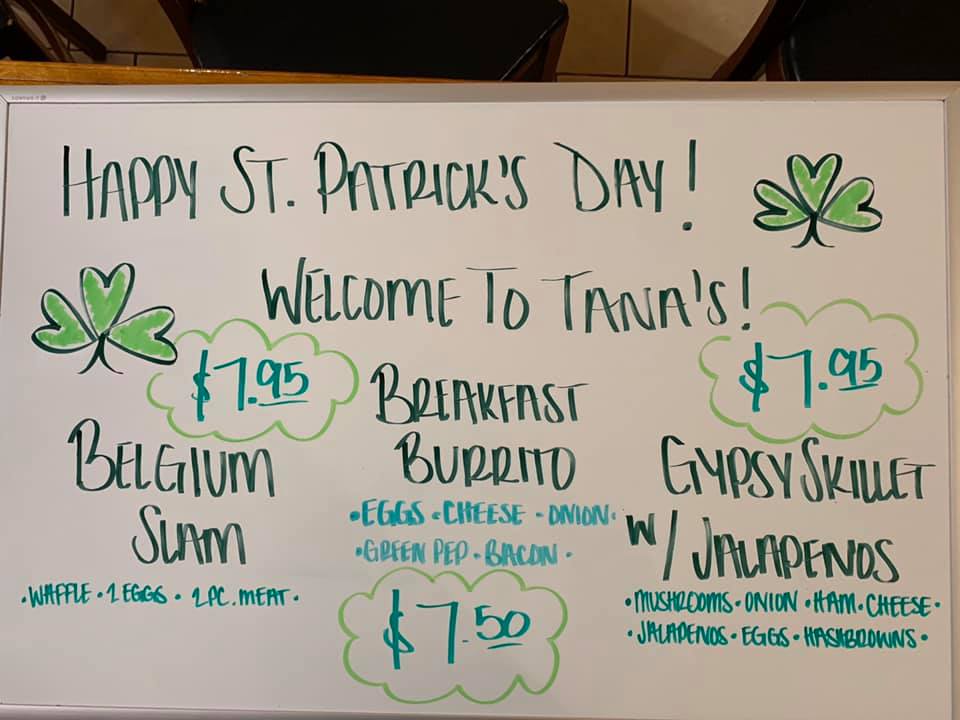 HAPPY ST. PATRICK'S DAY!
WELCOME TO TANA'S!
$7.95
BELGIUM
SLAM
•WAFFLE•2EGGS•2PC.MEAT•
BREAKFAST
BURRITO
•EGGS•CHEESE•ONION•
•GREEN PEP•BACON•
$7.50
$7.95
GYPSY SKILLET
W/JALAPENOS
•MUSHROOMS•ONION•HAM•CHEESE•
•JALAPENOS•EGGS•HASHBROWNS•